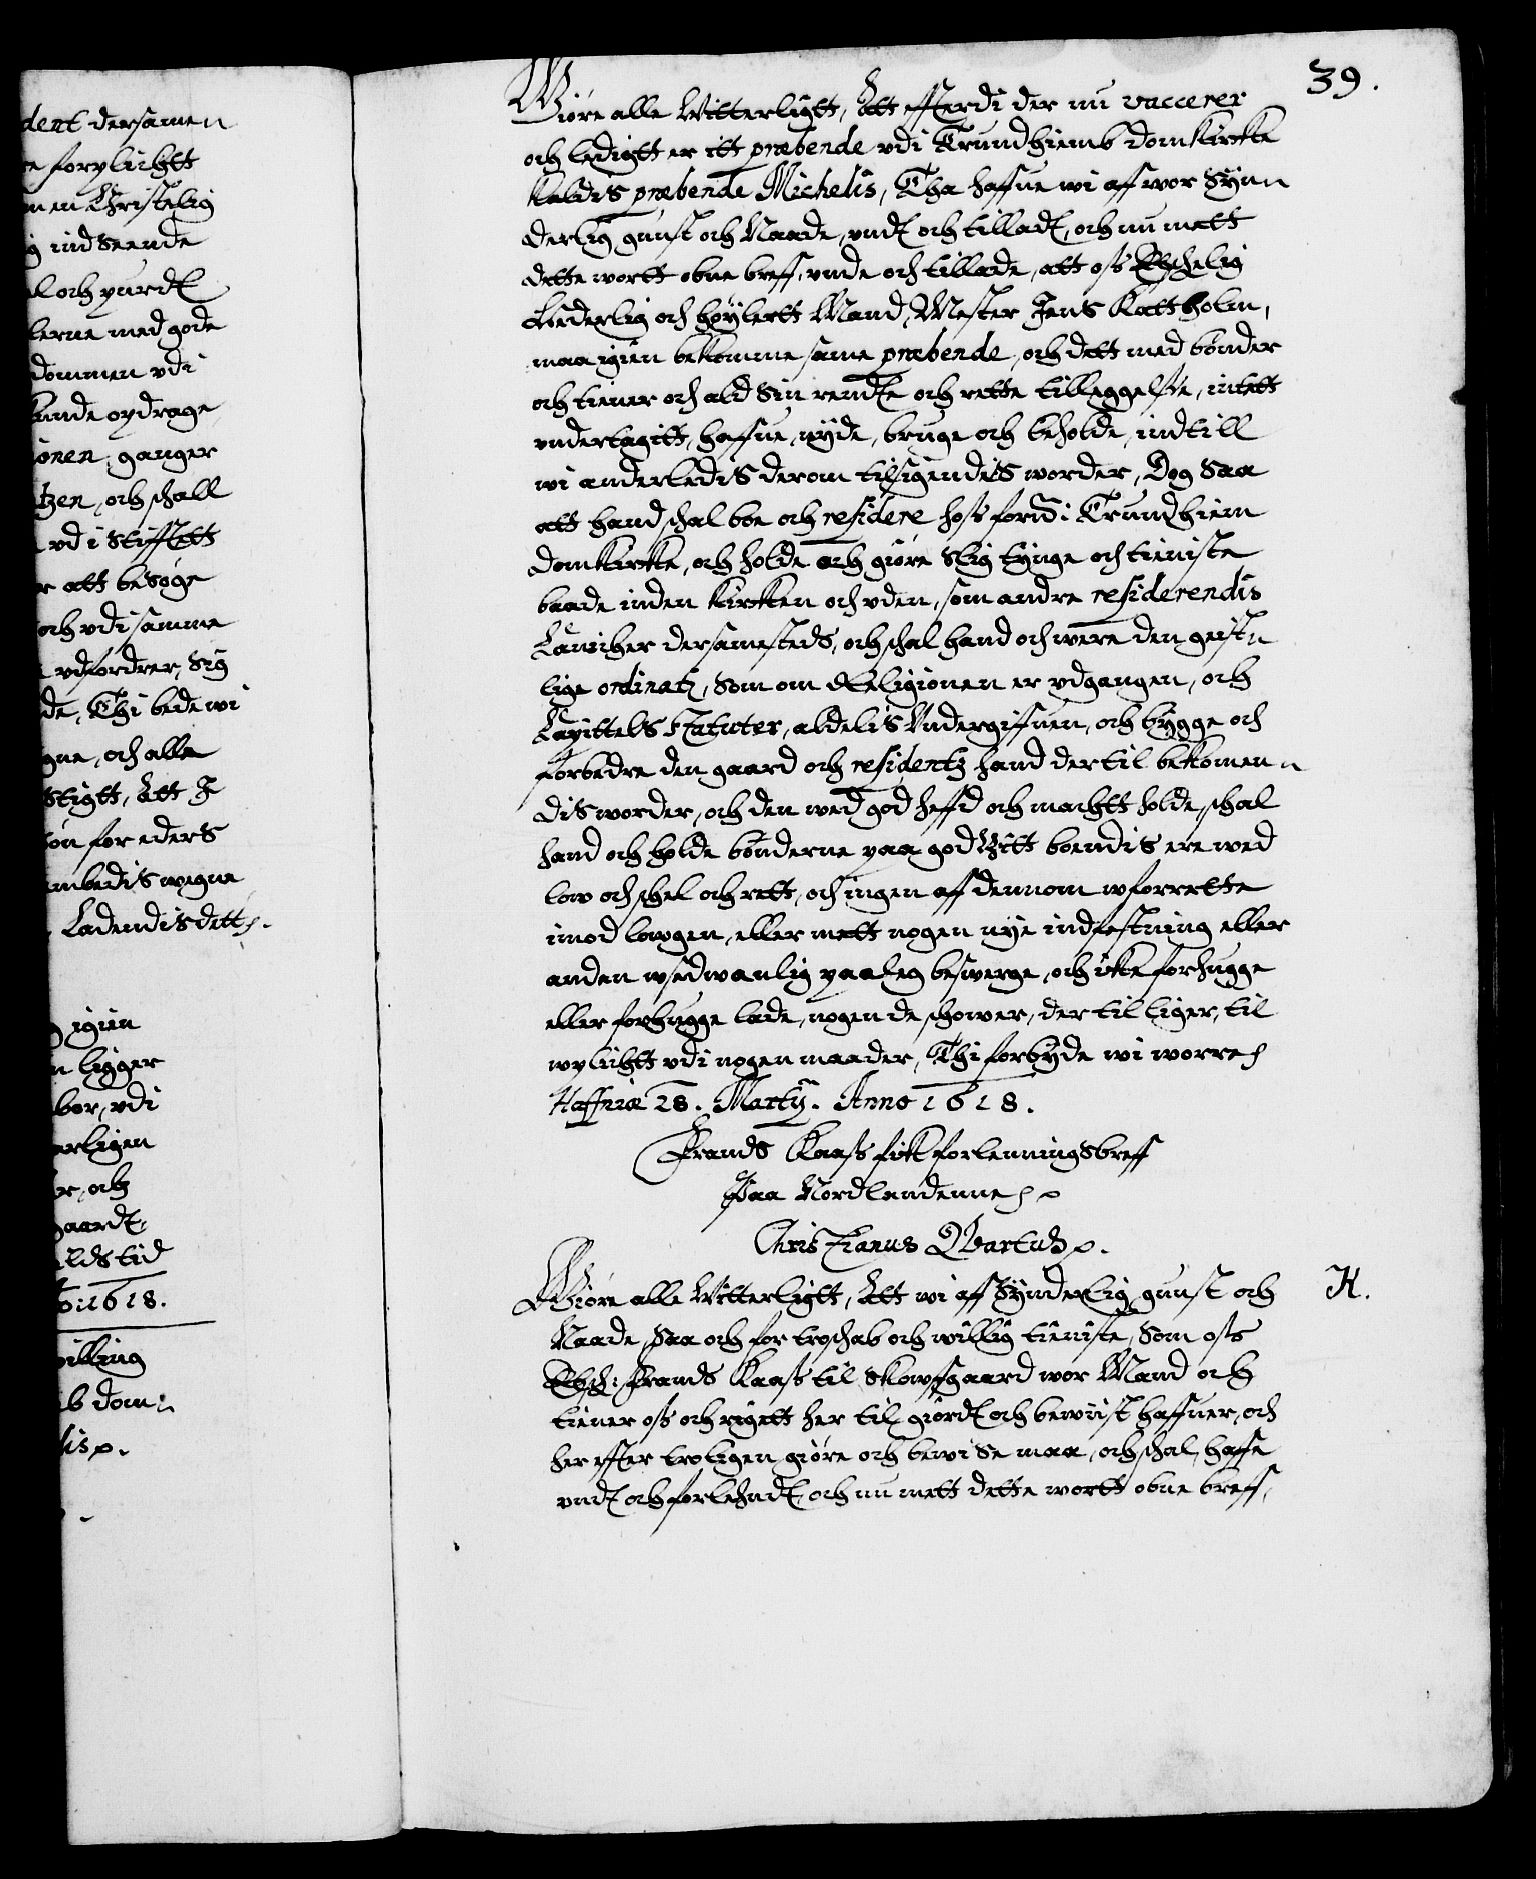 dent dersamen
re forplichtt
men Christelig
g indseende
el och purdt
lerne med gode
dommen vdi
kunde opdrage
ionen ganger
tzen, och schall
vdi Stifftett
r att besøge
och vdi samme
vdfordrer, Sig
de, Thi bede wi
gne, och alle
Sligtt, Att I
øn for eders
embedis wegne
Ladendis dett
igien
n ligger
bor, vdi
erligen
er, och
gaardt
ildstid
o: 1618.
pilling
b dom:
lis
39.
Giøre alle Witterligtt, Att effterdi der nu vaccerer
och ledigtt er itt præbende vdi Trundhiemb domkircke
kaldis præbende Michelis, Tha haffue wi aff wor Synn
derlig gunst och Naade, vndt och tilladt, och nu mett
dette wortt obne breff, vnde och tillade, att oss Elschelig
Hederlig och Høylertt Mand, Mester Jens Kattholm,
maa igien bekomme same præbende, och dett med bønder
och tiener och ald Sin rendte och rette tilleggelsse, intett
vndertagitt, haffue, nyde, bruge och beholde, indtill
wi anderledis derom tilsigendis worder, Dog Saa
att hand schal boe och residere hoss forne Trundhiem
domkircke, och holde och giøre Slig tynge och tieniste
baade inden kircken och vden, som andre residerendis
Canicher dersamesteds, och schal hand och were den geistn
lige ordinatz, Som om Religionen er vdgangen, och
Capittels Statuter, aldelis Vndergiffuen, och bygge och
forbedre den gaard och residentz hand dertil bekomen
dis worder, och den wed god heffd och machtt holde, schal
hand och holde bønderne paa god Witt boendis ere wed
low och schel och rett, och ingen aff dennom wforrette
imod lowgen, eller mett nogen nye indfestning eller
anden wsedwanlig paaleg beswerge, och icke forhugge
eller forhugge lade, nogen de schower, der til liger, til
wplichtt vdi nogen maader, Thi forbyde wi worre
Haffniæ 28. Martij. Anno 1618.
Frands Kaass fick forlenningsbreff
Paa Nordlendenne
Christianus Qvartus
Giøre alle Witterligtt, Att wi aff Synderlig gunst och
H.
Naade, Saa och for troschab och willig tieniste, Som oss
Elsch: Frands Kaass til Skowsgaard wor Mand och
tiener oss och rigett her til giordt och bewiist haffuer, och
her effter troligen giøre och bewise maa, och schal, haffe
vndt och forlehndt, och nu mett dette wortt obne breff,